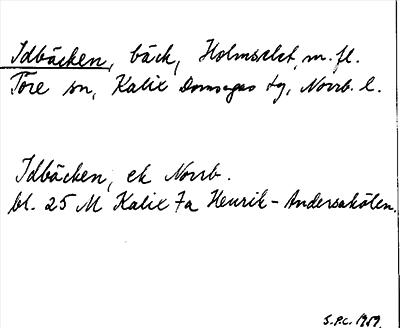 Idbäcken, bäck, Holmselet, m. fl.
Töre sn, Kalix Domsagas tg, Norrb. l.
Idbäcken, ek Norrb.
bl. 25 M Kalix 7a Henrik-Andersakölen.
S.P.C. 1959.